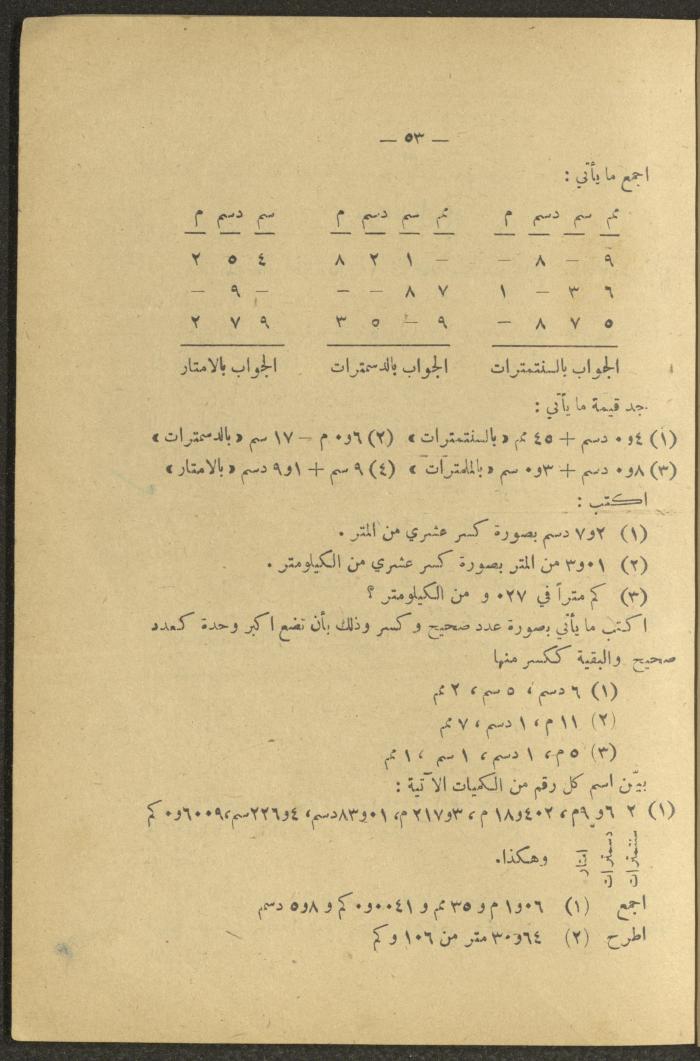 — ٥٣ —
اجمع ما يأتي :
مم سم دسم م    مم سم دسم م    سم دسم م
٩ – ٨ –    – ١ ٢ ٨    ٤ ٥ ٢
٦ ٣ – ١    ٧ ٨ – –    – ٩ –
٥ ٧ ٨ –    ٩ – ٥ ٣    ٩ ٧ ٢
الجواب بالسنتمترات    الجواب بالدسمترات    الجواب بالامتار
جد قيمة ما يأتي :
(١) ٤و٠ دسم + ٤٥ مم «بالسنتمترات» (٢) ٦و٠ م – ١٧ سم «بالدسمترات»
(٣) ٨و٠ دسم + ٣و٠ سم «بالملمترات» (٤) ٩ سم + ١و٩ دسم «بالامتار»
اكتب :
(١) ٢و٧ دسم بصورة كسر عشري من المتر .
(٢) ٠١و٣ من المتر بصورة كسر عشري من الكيلومتر .
(٣) كم متراً في ٠٢٧ و من الكيلومتر ؟
اكتب ما يأتي بصورة عدد صحيح وكسر وذلك بأن تضع اكبر وحدة كعدد
صحيح والبقية ككسر منها
(١) ٦ دسم ، ٥ سم ، ٢ مم
(٢) ١١ م ، ١ دسم ، ٧ مم
(٣) ٥ م ، ١ دسم ، ١ سم ، ١ مم
بيّن اسم كل رقم من الكميات الآتية :
(١) ٢ ٦و٩م، ٤٠٢و١٨ م ، ٣و٢١٧ م، ٠١و٨٣دسم، ٤و٢٢٦سم، ٦٠٠٩و٠ كم
سنتمترات دسمترات امتار وهكذا.
اجمع (١) ٠٦و١ م و ٣٥ مم و ٠٠٤١و٠ كم و ٨و٥ دسم
اطرح (٢) ٦٤و٣٠ متر من ١٠٦ و كم